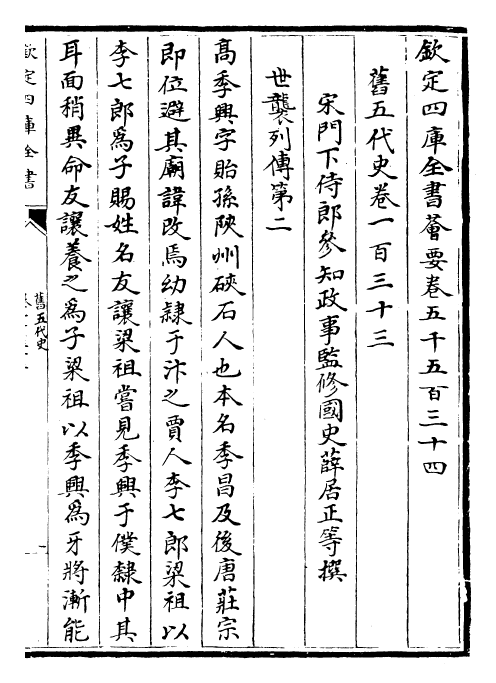 欽定四庫全書薈要卷五千五百三十四
舊五代史卷一百三十三
宋門下侍郎參知政事監修國史薛居正等撰
世襲列傳第二
高季興字貽孫陝州硤石人也本名季昌及後唐莊宗
即位避其廟諱改焉幼隸于汴之賈人李七郎梁祖以
李七郎為子賜姓名友讓梁祖嘗見季興于僕隸中其
耳面稍異命友讓養之為子梁祖以季興為牙將漸能
欽定四庫全書
舊五代史